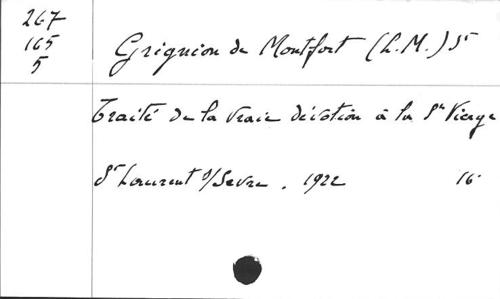 267
165
5
Grignion de Montfort (L.M.) St
Traité de la vraie dévotion à la Ste Vierge
St Laurent s/Sevre. 1922 16°